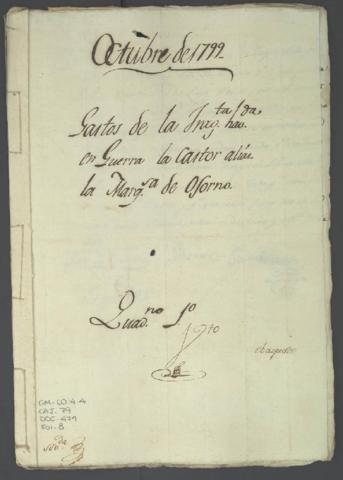 Octubre de 1799
Gastos de la Frag.ta hab.da
en Guerra la Castor alias
la Marq.sa de Osorno.
Quad.no 1º
GM-CO 4.4
CAJ. 79
DOC. 479
FOL. 8